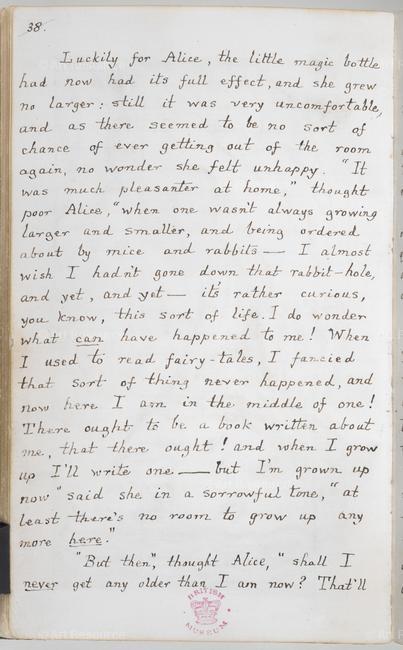 38.
Luckily for Alice, the little magic bottle
had now had its full effect, and she grew
no larger: still it was very uncomfortable,
and as there seemed to be no sort of
chance of ever getting out of the room
again, no wonder she felt unhappy. "It
was much pleasanter at home," thought
poor Alice, "when one wasn't always growing
larger and smaller, and being ordered
about by mice and rabbits — I almost
wish I hadn't gone down that rabbit-hole,
and yet, and yet — it's rather curious,
you know, this sort of life. I do wonder
what can have happened to me! When
I used to read fairy-tales, I fancied
that sort of thing never happened, and
now here I am in the middle of one!
There ought to be a book written about
me, that there ought! and when I grow
up I'll write one — but I'm grown up
now" said she in a sorrowful tone, "at
least there's no room to grow up any
more here."
"But then", thought Alice, "shall I
never get any older than I am now? That'll
BRITISH
MUSEUM
Art Resource